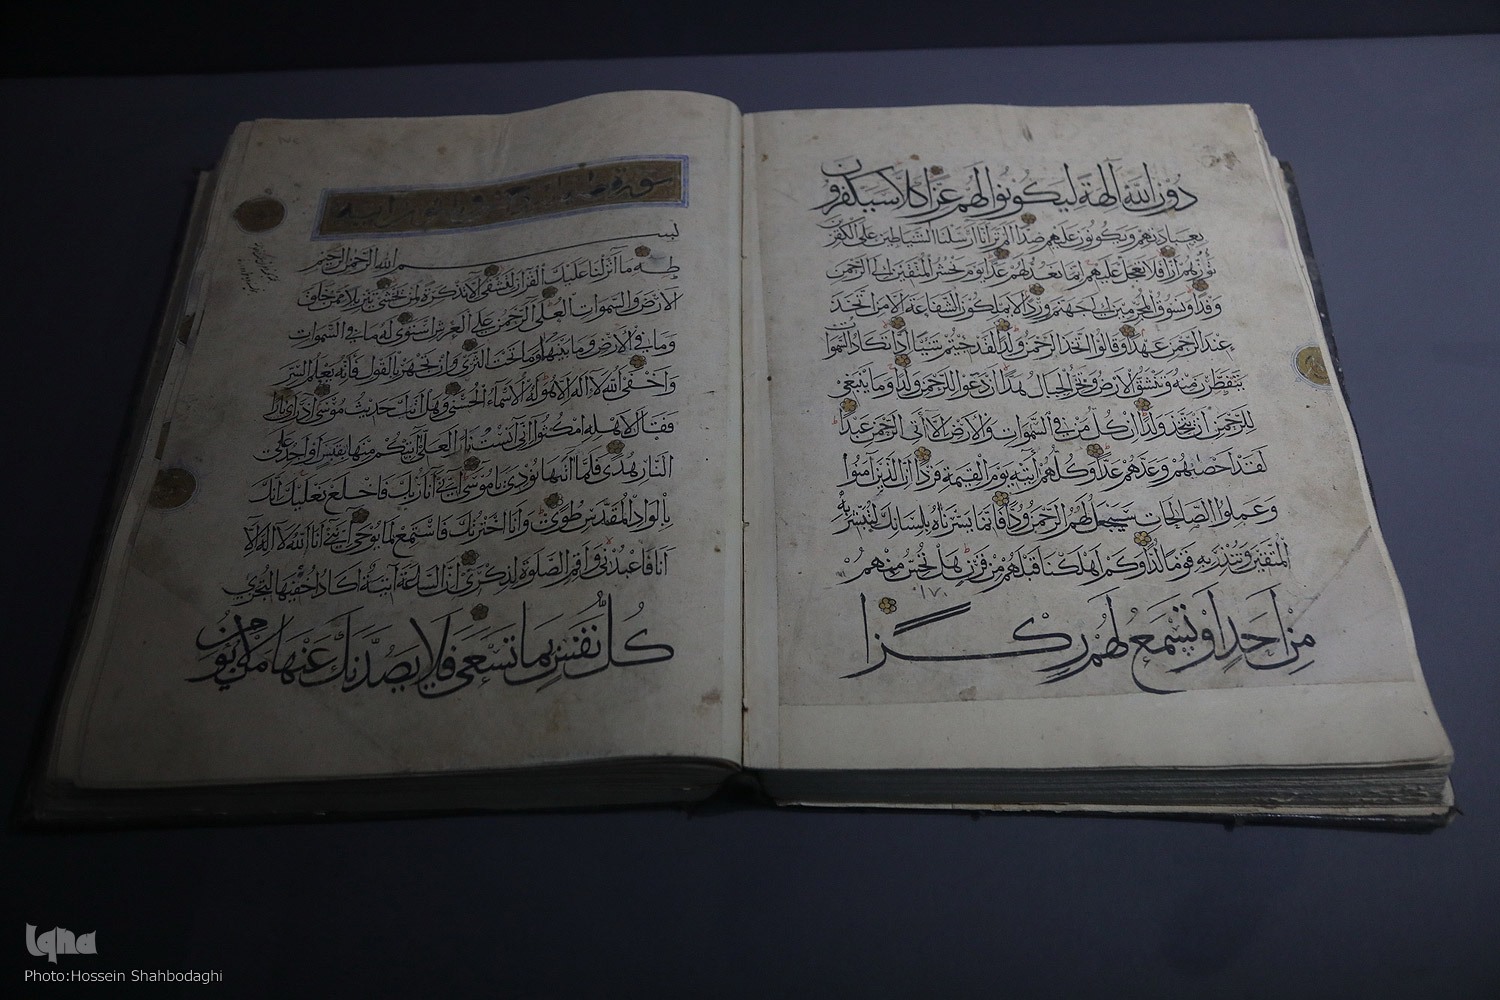 دون الله آلهة ليكونوا لهم عزا كلا سيكفرون
بعبادتهم ويكونون عليهم ضدا الم تر أنا أرسلنا الشياطين على الكفرين
تؤزهم أزا فلا تعجل عليهم انما نعد لهم عدا يوم نحشر المتقين الى الرحمن
وفدا ونسوق المجرمين الى جهنم وردا لا يملكون الشفاعة الا من اتخذ
عند الرحمن عهدا وقالوا اتخذ الرحمن ولدا لقد جئتم شيئا ادا تكاد السموات
يتفطرن منه وتنشق الارض وتخر الجبال هدا ان دعوا للرحمن ولدا وما ينبغي
للرحمن ان يتخذ ولدا ان كل من في السموات والارض الا آتى الرحمن عبدا
لقد احصيهم وعدهم عدا وكلهم آتيه يوم القيمة فردا ان الذين آمنوا
وعملوا الصالحات سيجعل لهم الرحمن ودا فانما يسرناه بلسانك لتبشر به
المتقين وتنذر به قوما لدا وكم اهلكنا قبلهم من قرن هل تحس منهم
١٧٠
من احد او تسمع لهم ركزا
سورة طه
بسم الله الرحمن الرحيم
طه ما أنزلنا عليك القرآن لتشقى الا تذكرة لمن يخشى تنزيلا ممن خلق
الارض والسموات العلى الرحمن على العرش استوى له ما في السموات
وما في الارض وما بينهما وما تحت الثرى وان تجهر بالقول فانه يعلم السر
واخفى الله لا اله الا هو له الاسماء الحسنى وهل اتيك حديث موسى اذ رأى نارا
فقال لاهله امكثوا انى آنست نارا لعلى آتيكم منها بقبس او اجد على
النار هدى فلما اتيها نودى يا موسى انى أنا ربك فاخلع نعليك انك
بالواد المقدس طوى وانا اخترتك فاستمع لما يوحى اننى أنا الله لا اله الا
انا فاعبدنى واقم الصلوة لذكرى ان الساعة آتية اكاد اخفيها لتجزى
كل نفس بما تسعى فلا يصدنك عنها من لا يؤمن
Iqna
Photo:Hossein Shahbodaghi